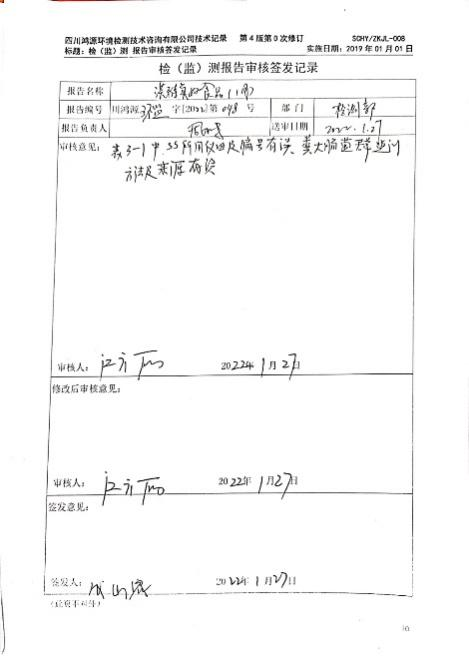 四川鸿源环境检测技术咨询有限公司技术记录 第4版第0次修订 SCHY/ZKJL-008
标题：检（监）测 报告审核签发记录 实施日期：2019年01月01日
检（监）测报告审核签发记录
报告名称 食品
报告编号 川鸿源 环监 字[2022]第098号 部门 检测部
报告负责人 送审日期 2022.1.27
审核意见： 表3-1中，SS所用仪器及编号有误、粪大肠菌群监测
方法及来源有误
审核人： 2022年1月27日
修改后审核意见：
审核人： 2022年1月27日
签发意见：
签发人： 2022年1月27日
（此页不对外）